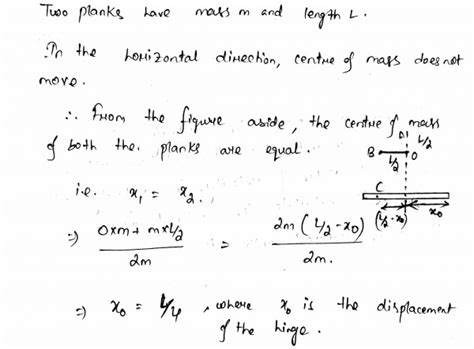 Two planks have mass m and length L.
In the horizontal direction, centre of mass does not
move.
∴ From the figure aside, the centre of mass
of both the planks are equal.
i.e. x₁ = x₂.
B O L/2
L/2
C
(L/2 - x₀) x₀
⇒ (0×m + m×L/2)/2m = 2m (L/2 - x₀)/2m.
⇒ x₀ = L/4, where x₀ is the displacement
of the hinge.